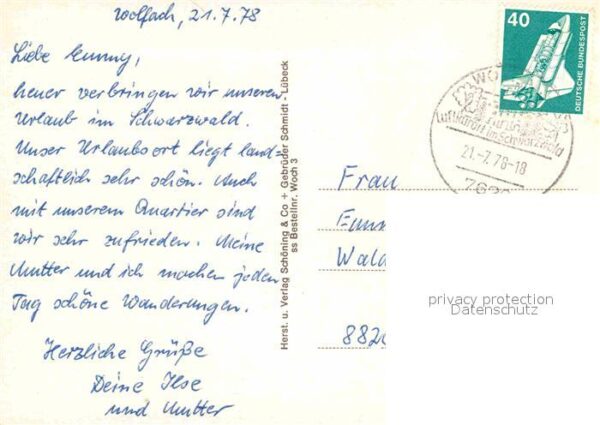 Wolfach, 21.7.78
Liebe Emmy,
heuer verbringen wir unseren
Urlaub im Schwarzwald.
Unser Urlaubsort liegt land=
schaftlich sehr schön. Auch
mit unserem Quartier sind
wir sehr zufrieden. Meine
Mutter und ich machen jeden
Tag schöne Wanderungen.
Herzliche Grüße
Deine Ilse
und Mutter
Herst. u. Verlag Schöning & Co + Gebrüder Schmidt - Lübeck
ss Bestellnr. Woch 3
40
DEUTSCHE BUNDESPOST
Luftkurort im Schwarzwald
21.-7.78-18
Frau
8820
privacy protection
Datenschutz